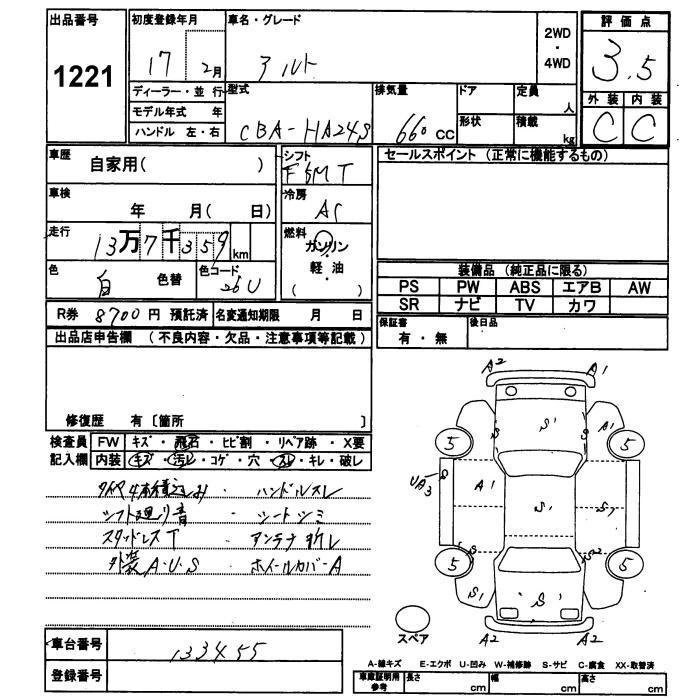 出品番号
1221
初度登録年月
17
2月
車名・グレード
アルト
2WD
・
4WD
評価点
3.5
外装 内装
C C
ディーラー・並 行
モデル年式 年
ハンドル 左・右
型式
CBA-HA24S
排気量
660 CC
ドア
形状
定員
人
積載
kg
車歴
自家用( )
シフト
F5MT
セールスポイント (正常に機能するもの)
車検
年 月( 日)
冷房
AC
走行
13万7千359km
燃料
ガソリン
軽・油
( )
色
白
色替
色コード
26U
装備品 (純正品に限る)
PS PW ABS エアB AW
SR ナビ TV カワ
R券 8700円 預託済
名変通知期限 月 日
保証書
有・無
後日品
出品店申告欄 (不良内容・欠品・注意事項等記載)
修復歴 有〔箇所 〕
検査員
記入欄
FW キズ・飛石・ヒビ割・リペア跡・X要
内装 キズ・汚レ・コゲ・穴・スレ・キレ・破レ
タイヤ4本積込み・ハンドルスレ
シフト廻り音・シートシミ
スタッドレスT・アンテナ折レ
外装A・U・S・ホイールカバーA
A2 A1
S S1 S A1
5 5
UA3 S A1 S1 S1
5 S S2 5
S1 S1 S
A2 A2
スペア
車台番号
133455
登録番号
A-線キズ E-エクボ U-凹み W-補修跡 S-サビ C-腐食 XX-取替済
車庫証明用
参考
長さ cm
幅 cm
高さ cm